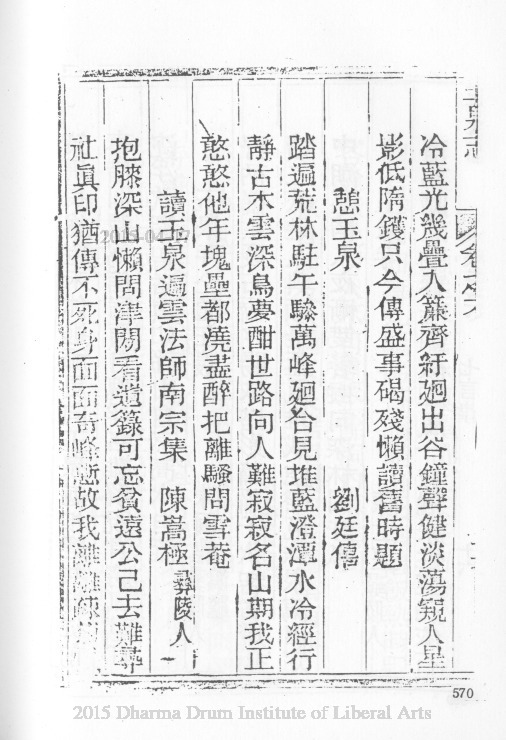 玉泉志
卷之六
冷藍光幾疊入簾齊紆廻出谷鐘聲健淡蕩窺人星
影低隋鑊只今傳盛事碣殘懶讀舊時題
憇玉泉 劉廷僖
踏遍荒林駐午驂萬峰廻合見堆藍澄潭水冷經行
靜古木雲深鳥夢酣世路向人難寂寂名山期我正
憨憨他年塊壘都澆盡醉把離騷問雪菴
讀玉泉遍雲法師南宗集 陳嵩極 彝陵人
抱膝深山懶問津閑看遺籙可忘貧遠公已去難尋
社眞印猶傳不死身面面奇峰慙故我離離
570
2015-04-27
2015 Dharma Drum Institute of Liberal Arts